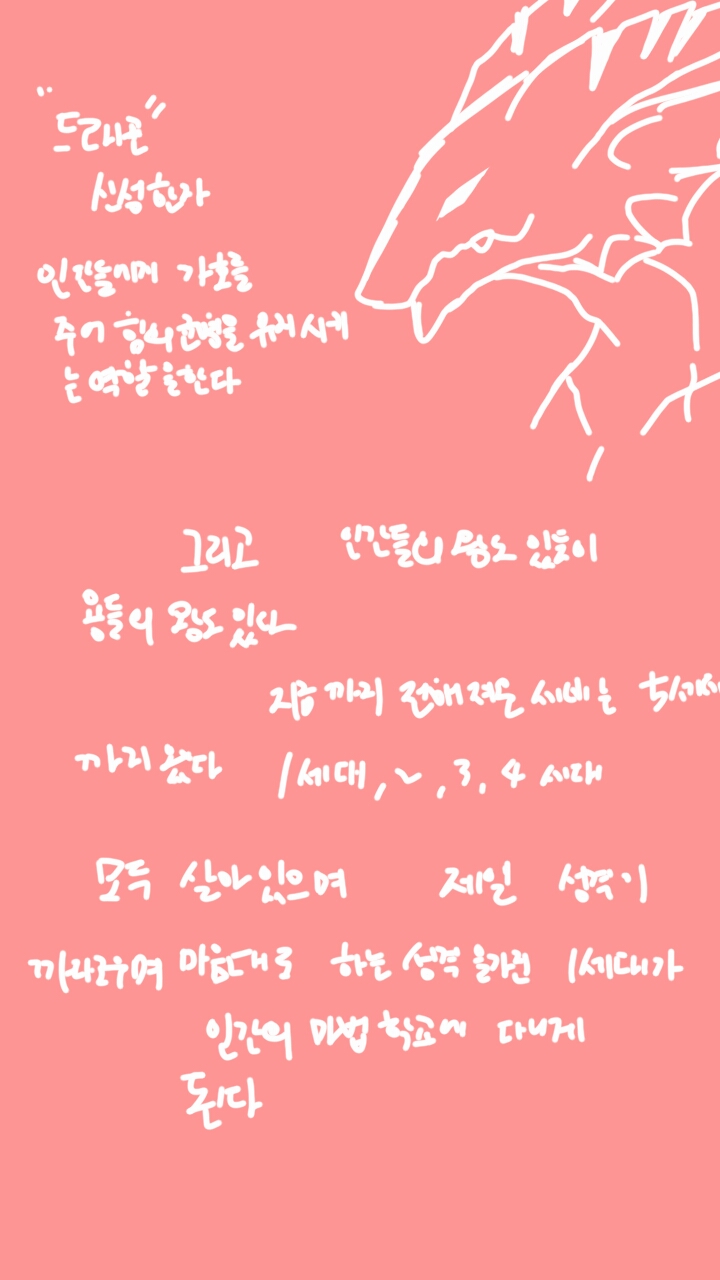 "드래곤"
신성한자
인간들에게 가호를
주어 힘의 균형을 유지시키
는 역할을 한다
그리고 인간들의 왕도 있듯이
용들의 왕도 있다
지금까지 전해져온 세대는 5세대
까지 왔다 1세대, 2, 3, 4 세대
모두 살아있으며 제일 성격이
까다로우며 마음대로 하는 성격을 가진 1세대가
인간의 마법 학교에 다니게
된다